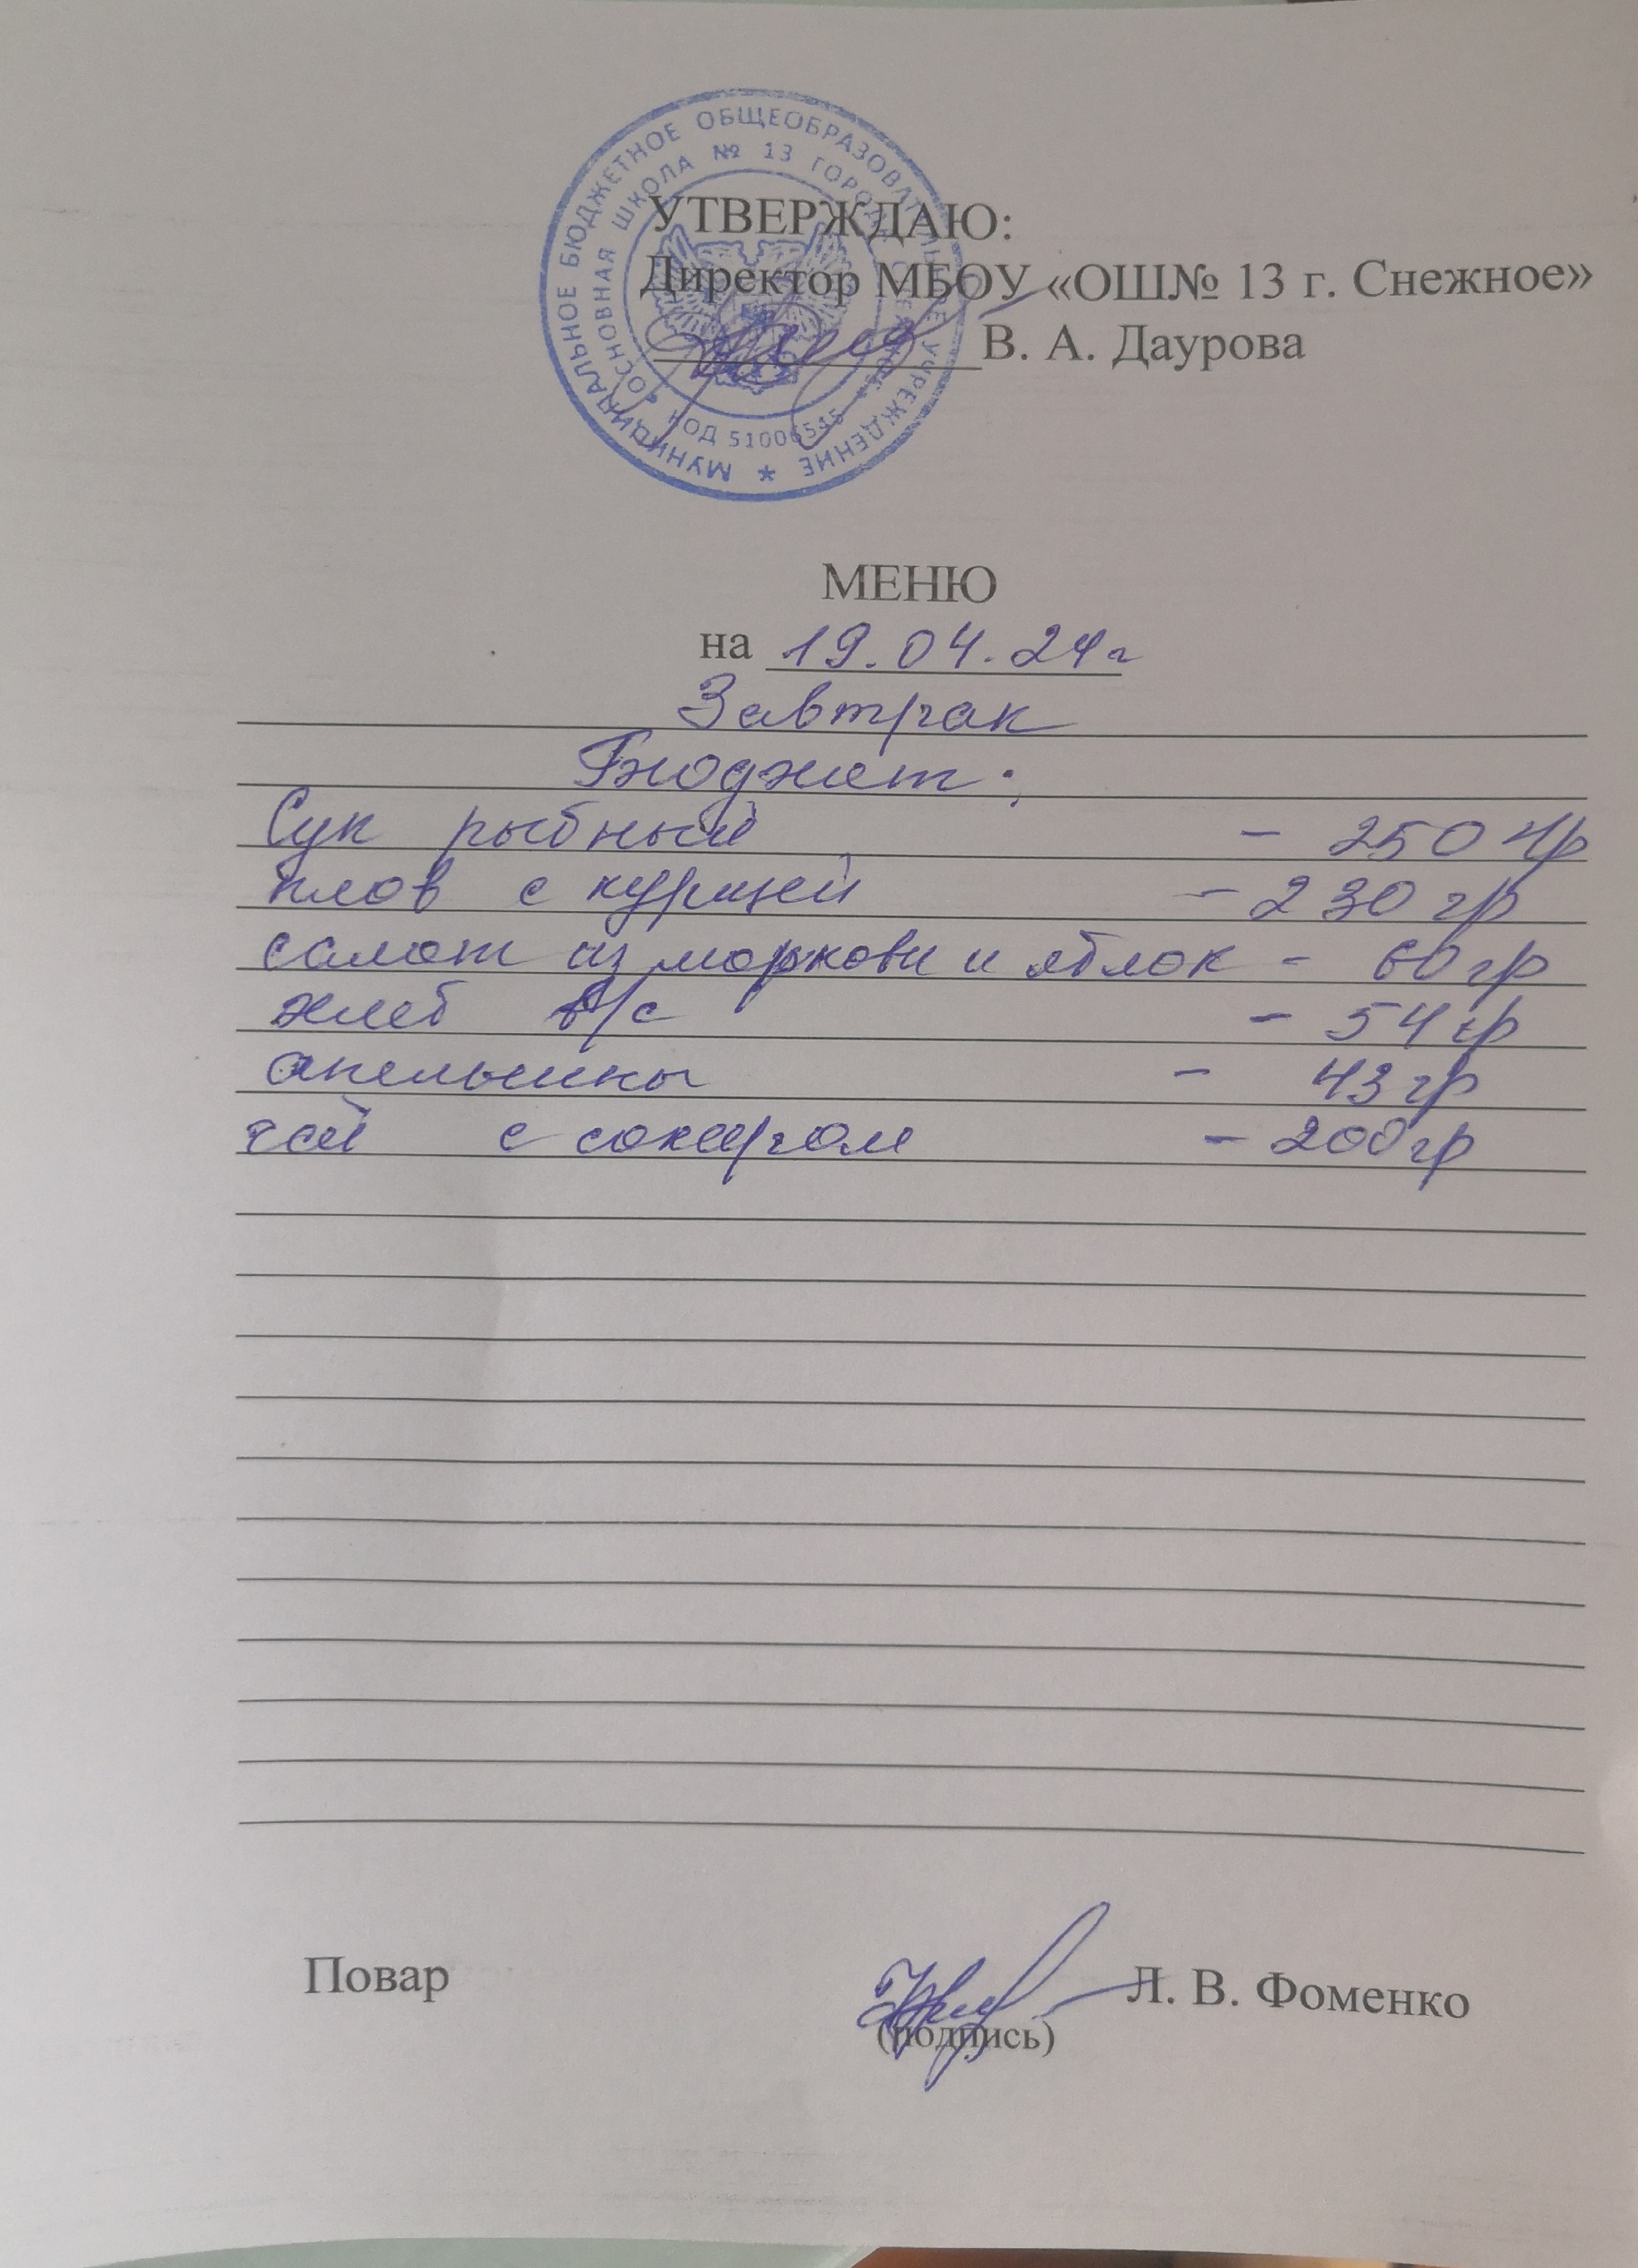 МУНИЦИПАЛЬНОЕ БЮДЖЕТНОЕ ОБЩЕОБРАЗОВАТЕЛЬНОЕ УЧРЕЖДЕНИЕ *
ОСНОВНАЯ ШКОЛА № 13 ГОРОДА
КОД 51006545
УТВЕРЖДАЮ:
Директор МБОУ «ОШ№ 13 г. Снежное»
В. А. Даурова
МЕНЮ
на 19.04.24г
Завтрак
Бюджет:
Суп рыбный - 250 гр
плов с курицей - 230 гр
салат из моркови и яблок - 60 гр
хлеб в/с - 54 гр
апельсины - 43 гр
чай с сахаром - 200 гр
Повар Л. В. Фоменко
(подпись)